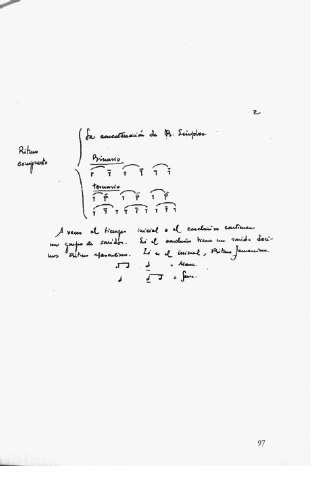 2
La concatenación de R. Simples
Ritmo
compuesto
Binario
Ternario
A veces el tiempo inicial o el conclusivo contienen
un grupo de sonidos. Si el conclusivo tiene un sonido deci-
mos Ritmo masculino. Si es el inicial, Ritmo femenino.
= Masc.
= fem.
97